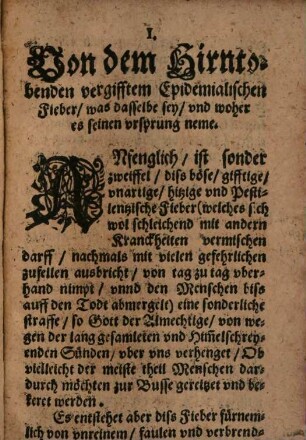 I.
Von dem Hirnto-
benden vergifftem Epidemialischen
Fieber / was dasselbe sey / vnd woher
es seinen vrsprung neme.
ANfenglich / ist sonder
zweiffel / diß böse / gifftige /
vnartige / hitzige vnd Pesti-
lentzische Fieber (welches sich
wol schleichend mit andern
Kranckheiten vermischen
darff / nachmals mit vielen gefehrlichen
zufellen ausbricht / von tag zu tag vber-
hand nimpt / vnnd den Menschen biß
auff den Todt abmergelt) eine sonderliche
straffe / so Gott der Almechtige / von we-
gen der lang gesamleten vnd Himelschrey-
enden Sünden / vber vns verhenget / Ob
vielleicht der meiste theil Menschen dar-
durch möchten zur Busse gereitzet vnd be-
keret werden.
Es entstehet aber diß Fieber fürnem-
lich von vnreinem / faulen vnd verbrend-